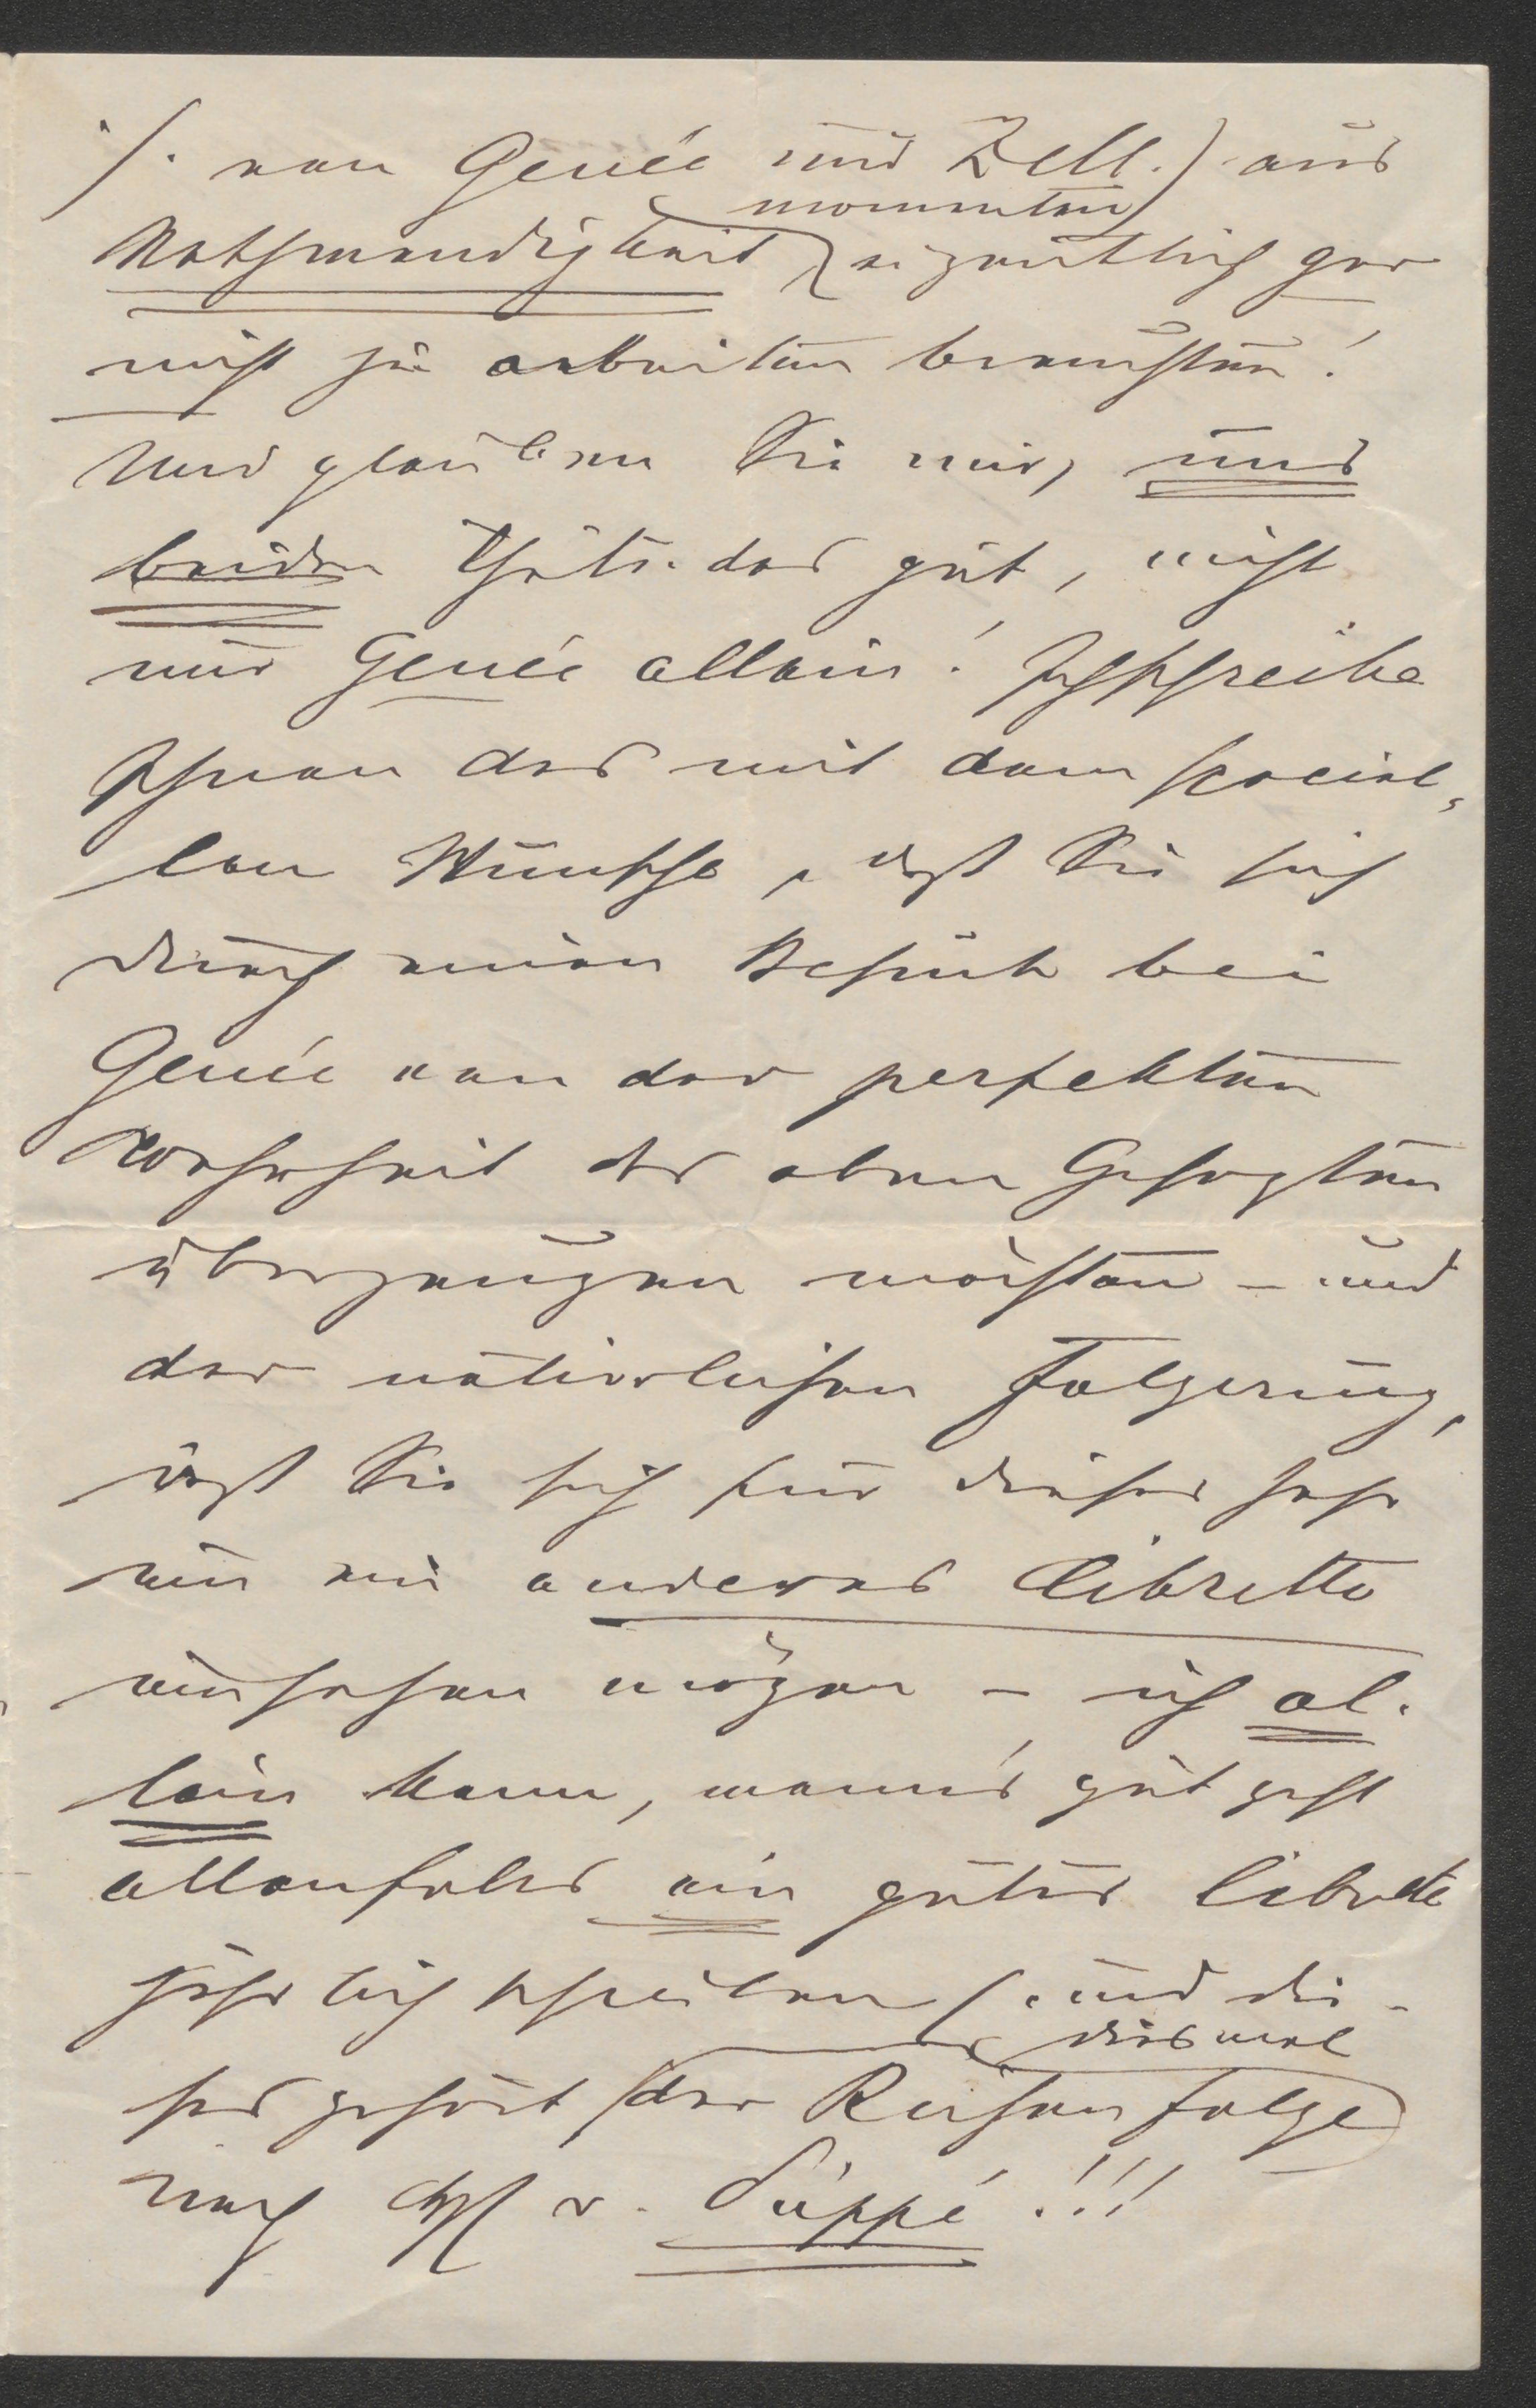 /. von Genée und Zell.) aus
momentan
Nothwendigkeit eigentlich gar
nicht zu arbeiten brauchten!
Und glauben Sie mir, uns
beiden thäte das gut, nicht
nur Genée allein! Ich schreibe
Ihnen das mit dem speciel-
len Wunsche, daß Sie sich
durch einen Besuch bei
Genée von der perfekten
Wahrheit des oben Gesagten
überzeugen möchten – und
der natürlichen Folgerung,
daß Sie sich für dieses Jahr
um ein anderes Libretto
umsehen mögen – ich al-
lein kann, wenn's gut geht
allenfalls ein gutes Libretto
jährlich schreiben (und die-
diesmal
ses gehört der Reihenfolge
nach v. Suppé!!!